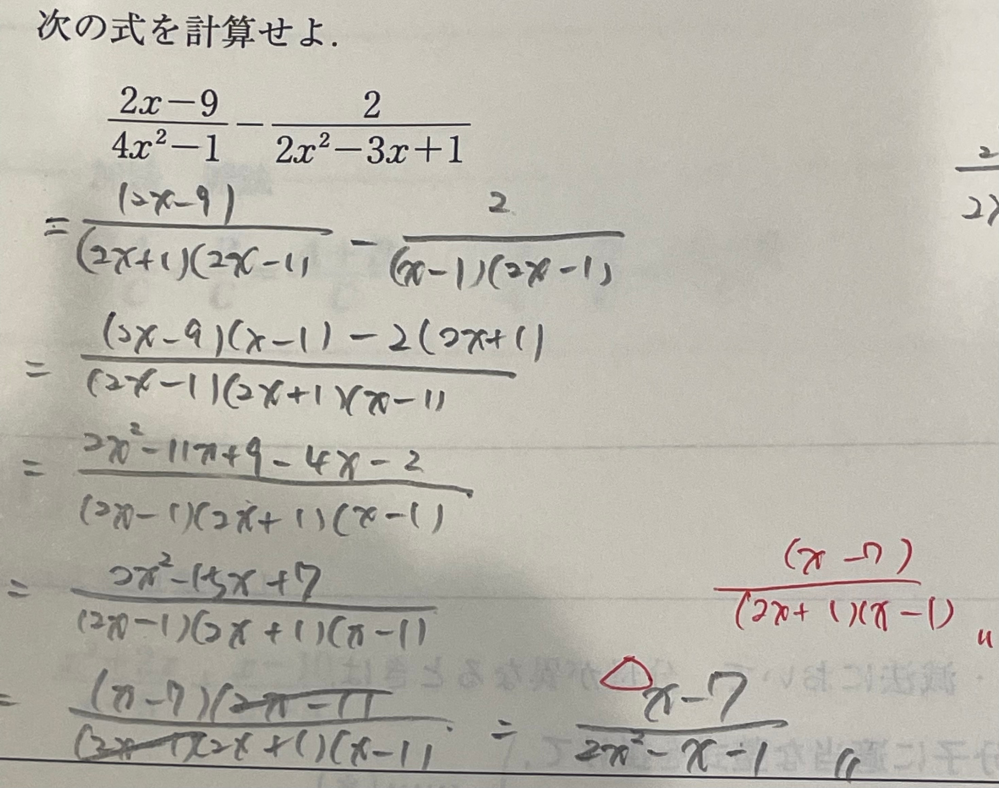 次の式を計算せよ.
\frac{2x-9}{4x^2-1} - \frac{2}{2x^2-3x+1}
= \frac{(2x-9)}{(2x+1)(2x-1)} - \frac{2}{(x-1)(2x-1)}
= \frac{(2x-9)(x-1)-2(2x+1)}{(2x-1)(2x+1)(x-1)}
= \frac{2x^2-11x+9-4x-2}{(2x-1)(2x+1)(x-1)}
= \frac{2x^2-15x+7}{(2x-1)(2x+1)(x-1)}
\frac{(x-7)}{(2x+1)(x-1)}
= \frac{(x-7)(2x-1)}{(2x-1)(2x+1)(x-1)} = \frac{x-7}{2x^2-x-1}